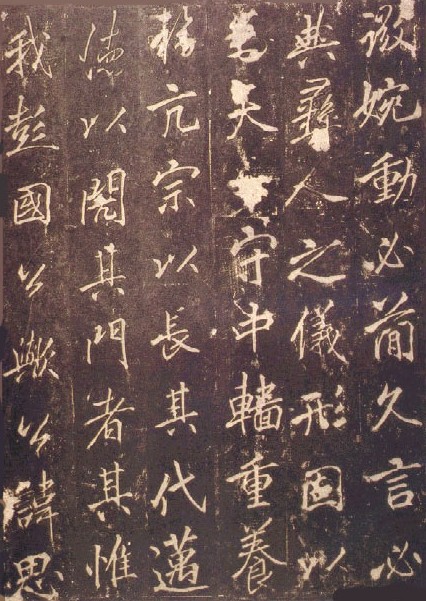 微婉動必簡久言必
典彝人之儀形因以
為天守中輜重養
福亢宗以長其代邁
德以闢其門者其惟
我彭國公歟公諱思